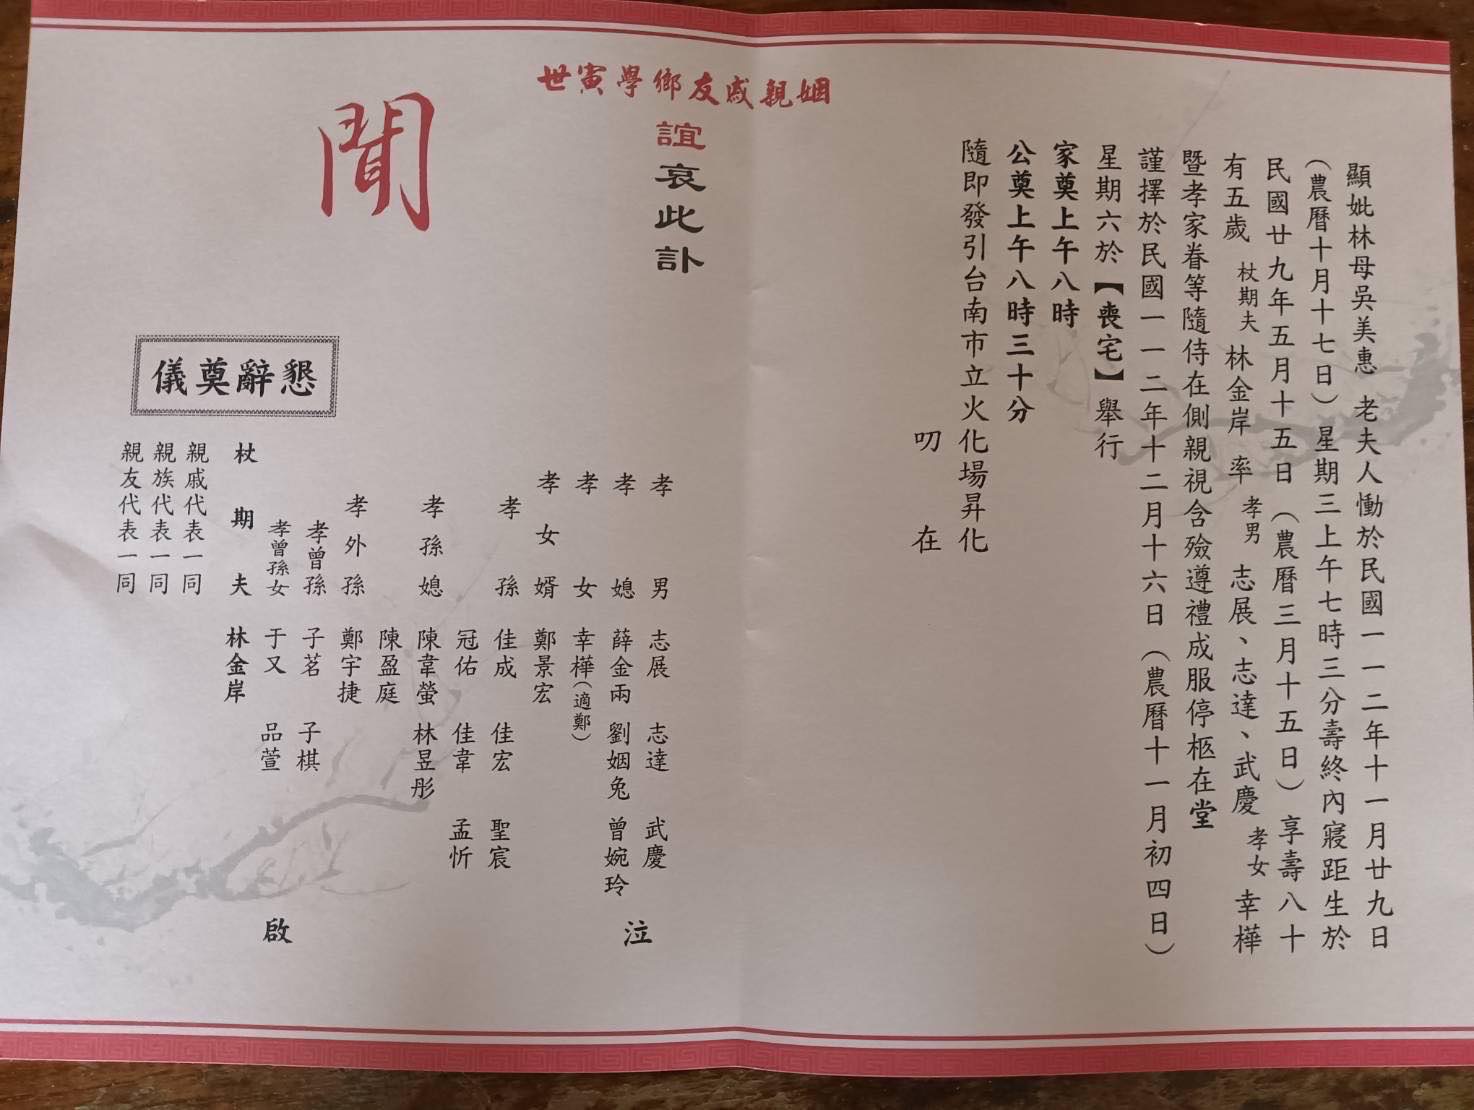 顯妣林母吳美惠 老夫人慟於民國一一二年十一月廿九日
（農曆十月十七日）星期三上午七時三分壽終內寢距生於
民國廿九年五月十五日（農曆三月十五日）享壽八十
有五歲 杖期夫 林金岸 率 孝男 志展、志達、武慶 孝女 幸樺
暨孝家眷等隨侍在側親視含殮遵禮成服停柩在堂
謹擇於民國一一二年十二月十六日（農曆十一月初四日）
星期六於【喪宅】舉行
家奠上午八時
公奠上午八時三十分
隨即發引台南市立火化場昇化
叨 在
世寅學鄉友戚親姻
誼哀此訃
聞
懇辭奠儀
孝男 志展 志達 武慶 泣
孝媳 薛金兩 劉姻兔 曾婉玲
孝女 幸樺（適鄭）
孝女婿 鄭景宏
孝孫 佳成 佳宏 聖宸
冠佑 佳韋 孟忻
孝孫媳 陳韋螢 林昱彤
陳盈庭
孝外孫 鄭宇捷
孝曾孫 子茗 子棋
孝曾孫女 于又 品萱 啟
杖期夫 林金岸
親戚代表一同
親族代表一同
親友代表一同